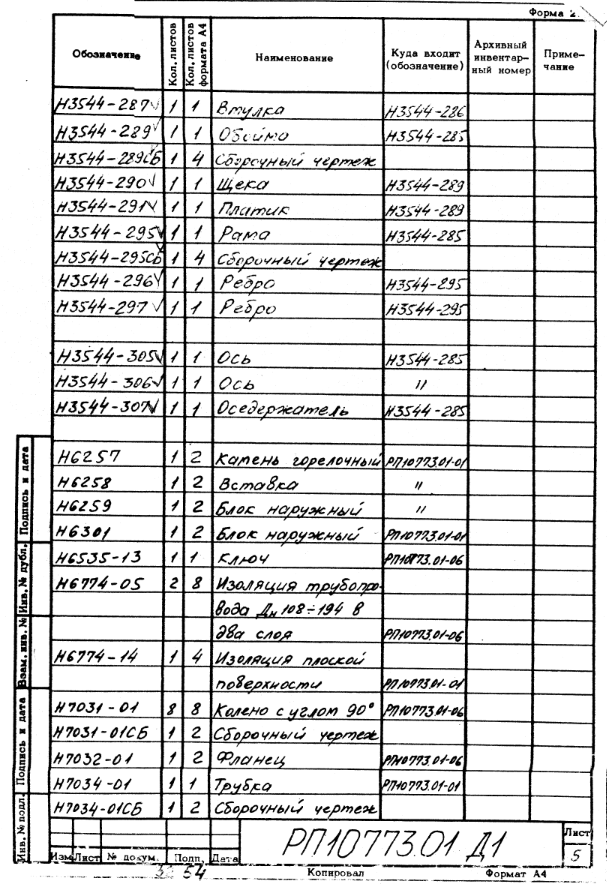 Форма 2
Обозначение Кол. листов Кол. листов формата А4 Наименование Куда входит (обозначение) Архивный инвентар-ный номер Приме-чание
Н3544-287 √ 1 1 Втулка Н3544-286
Н3544-289 √ 1 1 Обойма Н3544-285
Н3544-289СБ 1 4 Сборочный чертеж
Н3544-290 √ 1 1 Щека Н3544-289
Н3544-291 √ 1 1 Платик Н3544-289
Н3544-295 √ 1 1 Рама Н3544-285
Н3544-295СБ 1 4 Сборочный чертеж
Н3544-296 √ 1 1 Ребро Н3544-295
Н3544-297 √ 1 1 Ребро Н3544-295
Н3544-305 √ 1 1 Ось Н3544-285
Н3544-306 √ 1 1 Ось "
Н3544-307 √ 1 1 Оседержатель Н3544-285
Н6257 1 2 Камень горелочный РП10773.01-01
Н6258 1 2 Вставка "
Н6259 1 2 Блок наружный "
Н6301 1 2 Блок наружный РП10773.01-01
Н6535-13 1 1 Ключ РП10773.01-06
Н6774-05 2 8 Изоляция трубопро-
вода Дн 108÷194 в
два слоя РП10773.01-06
Н6774-14 1 4 Изоляция плоской
поверхности РП10773.01-01
Н7031-01 8 8 Колено с углом 90° РП10773.01-06
Н7031-01СБ 1 2 Сборочный чертеж
Н7032-01 1 2 Фланец РП10773.01-06
Н7034-01 1 1 Трубка РП10773.01-01
Н7034-01СБ 1 2 Сборочный чертеж
Подпись и дата
Инв. № дубл.
Взам. инв. №
Подпись и дата
Инв. № подл.
РП10773.01 Д1
Лист
5
Изм Лист № докум. Подп. Дата
54
Копировал Формат А4